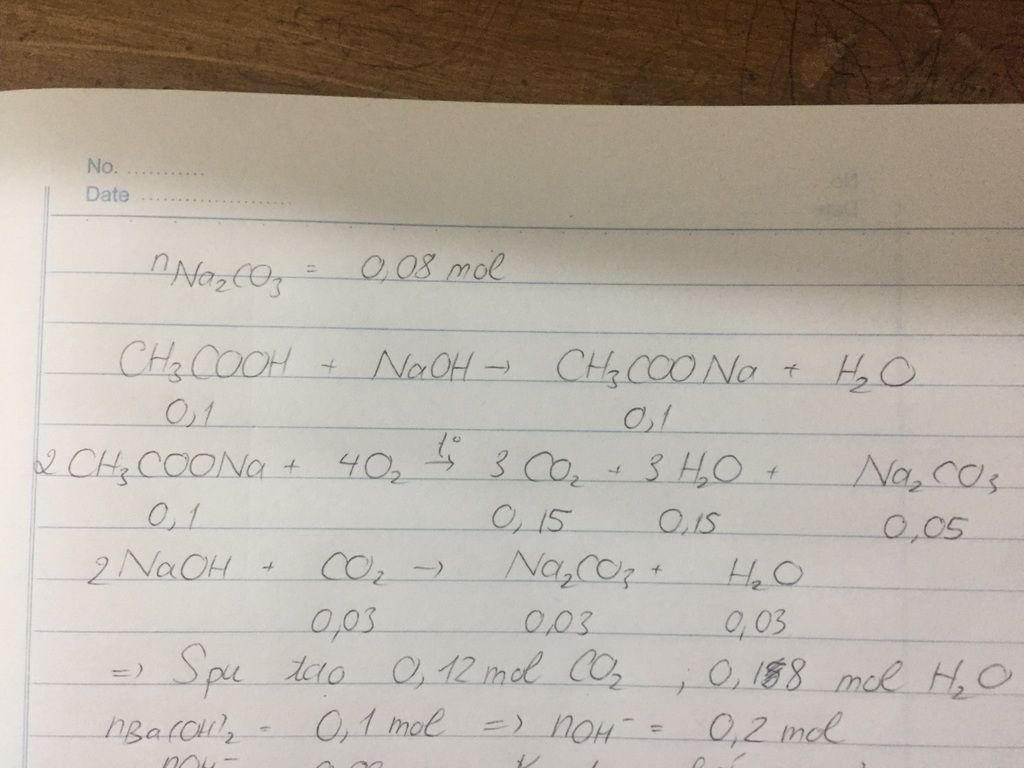 No. ...........
Date ......................
nNa₂CO₃ = 0,08 mol
CH₃COOH + NaOH → CH₃COONa + H₂O
0,1 0,1
2CH₃COONa + 4O₂ t°→ 3CO₂ + 3H₂O + Na₂CO₃
0,1 0,15 0,15 0,05
2NaOH + CO₂ → Na₂CO₃ + H₂O
0,03 0,03 0,03
=> Spư tạo 0,12 mol CO₂ , 0,18 mol H₂O
nBa(OH)₂ = 0,1 mol => nOH⁻ = 0,2 mol
nOH⁻